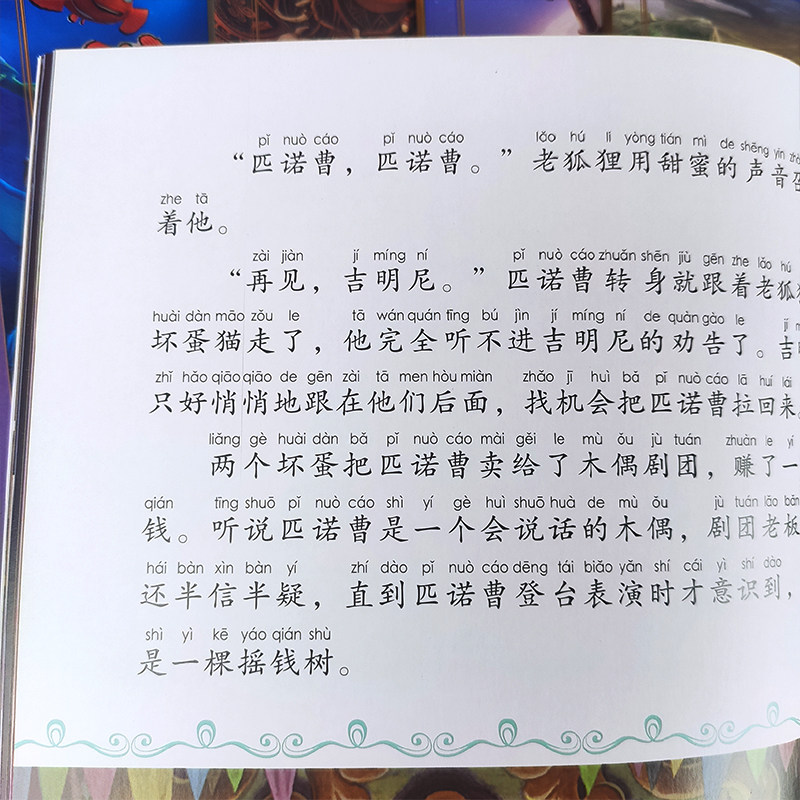 pǐ nuò cáo pǐ nuò cáo lǎo hú li yòng tián mì de shēng yīn
“匹诺曹，匹诺曹。”老狐狸用甜蜜的声音
zhe tā
着他。
zài jiàn jí míng ní pǐ nuò cáo zhuǎn shēn jiù gēn zhe lǎo hú
“再见，吉明尼。”匹诺曹转身就跟着老狐
huài dàn māo zǒu le tā wán quán tīng bú jìn jí míng ní de quàn gào le
坏蛋猫走了，他完全听不进吉明尼的劝告了。吉
zhǐ hǎo qiāo qiāo de gēn zài tā men hòu miàn zhǎo jī huì bǎ pǐ nuò cáo lā huí lái
只好悄悄地跟在他们后面，找机会把匹诺曹拉回来。
liǎng gè huài dàn bǎ pǐ nuò cáo mài gěi le mù ǒu jù tuán zhuàn le yì
两个坏蛋把匹诺曹卖给了木偶剧团，赚了一
qián tīng shuō pǐ nuò cáo shì yí gè huì shuō huà de mù ǒu jù tuán lǎo bǎn
钱。听说匹诺曹是一个会说话的木偶，剧团老板
hái bàn xìn bàn yí zhí dào pǐ nuò cáo dēng tái biǎo yǎn shí cái yì shí dào
还半信半疑，直到匹诺曹登台表演时才意识到，
shì yì kē yáo qián shù
是一棵摇钱树。